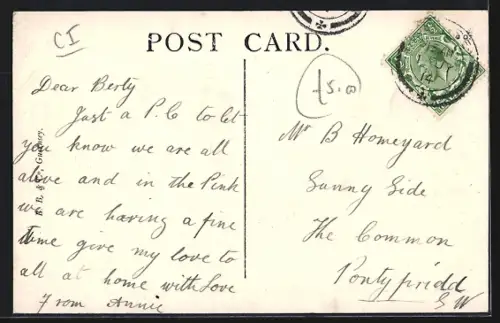 CI
POST CARD.
£5.00
Dear Berty
Just a P.C to let
you know we are all
alive and in the Pink
we are having a fine
time give my love to
all at home with Love
From Annie
& Co., Guernsey.
Mr B Homeyard
Sunny Side
The Common
Pontypridd
S W
14